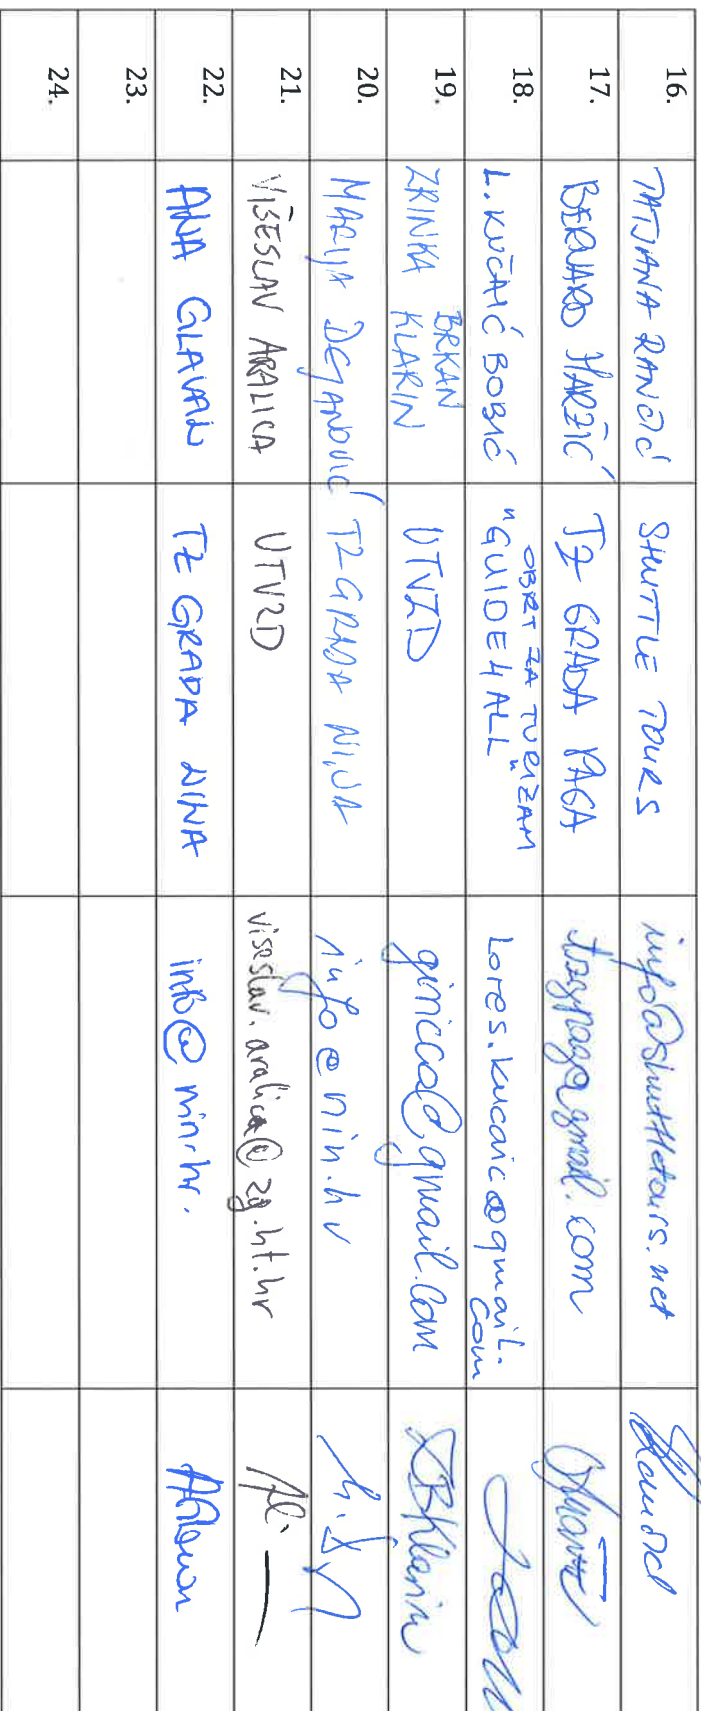 16. TATJANA RANČIĆ SHUTTLE TOURS info@shuttletours.net
17. BERNARD MARŽIĆ TZ GRADA PAGA tzgpaga@gmail.com
18. L. KUČAIĆ BOBIĆ OBRT ZA TURIZAM
"GUIDE4ALL" Lores.kucaic@gmail.
com
19. ZRINKA BRKAN
KLARIN UTVZD giricca@gmail.com ZBKlarin
20. MARIJA DEJANOVIĆ TZ GRADA NINA info@nin.hr
21. VIŠESLAV ARALICA UTVZD viseslav.aralica@zg.ht.hr
22. ANA GLAVAN TZ GRADA NINA info@nin.hr. AGlavan
23.
24.